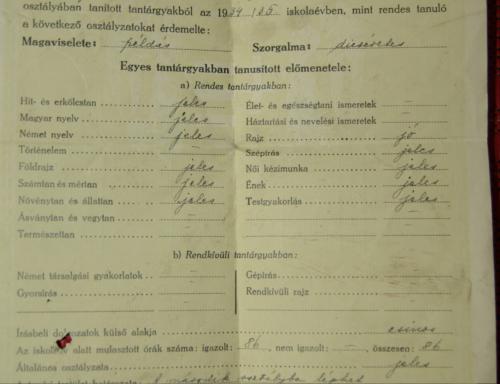 osztályában tanított tantárgyakból az 1934/35 iskolaévben, mint rendes tanuló
a következő osztályzatokat érdemelte:
Magaviselete: példás Szorgalma: dicséretes
Egyes tantárgyakban tanusított előmenetele:
a) Rendes tantárgyakban:
Hit- és erkölcstan jeles
Magyar nyelv jeles
Német nyelv jeles
Történelem —
Földrajz jeles
Számtan és mértan jeles
Növénytan és állattan jeles
Ásványtan és vegytan —
Természettan —
Élet- és egészségtani ismeretek —
Háztartási és nevelési ismeretek —
Rajz jó
Szépírás jeles
Női kézimunka jeles
Ének jeles
Testgyakorlás jeles
b) Rendkívüli tantárgyakban:
Német társalgási gyakorlatok —
Gyorsírás —
Gépírás —
Rendkívüli rajz —
Írásbeli dolgozatok külső alakja csinos
Az iskolaév alatt mulasztott órák száma: igazolt: 86, nem igazolt: —, összesen: 86
Általános osztályzata jeles
A második osztályba léphet